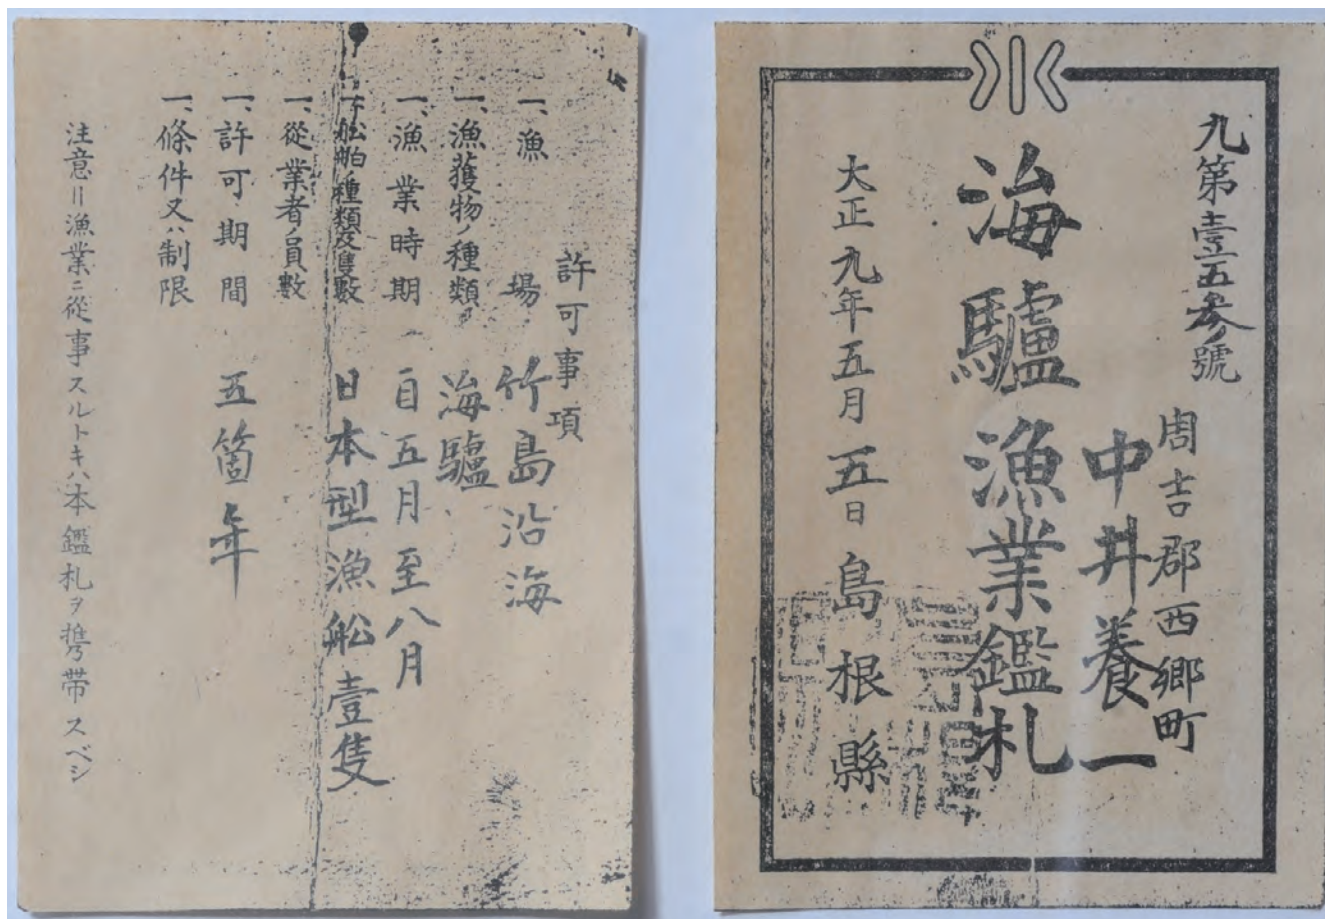 九第壹五參號
周吉郡西郷町
中井養一
海驢漁業鑑札
大正九年五月五日 島根縣
許可事項
一、漁場 竹島沿海
一、漁獲物ノ種類 海驢
一、漁業時期 自五月至八月
一、船舶ノ種類及隻數 日本型漁船壹隻
一、從業者ノ員數
一、許可期間 五箇年
一、條件又ハ制限
注意=漁業ニ從事スルトキハ本鑑札ヲ携帶スベシ